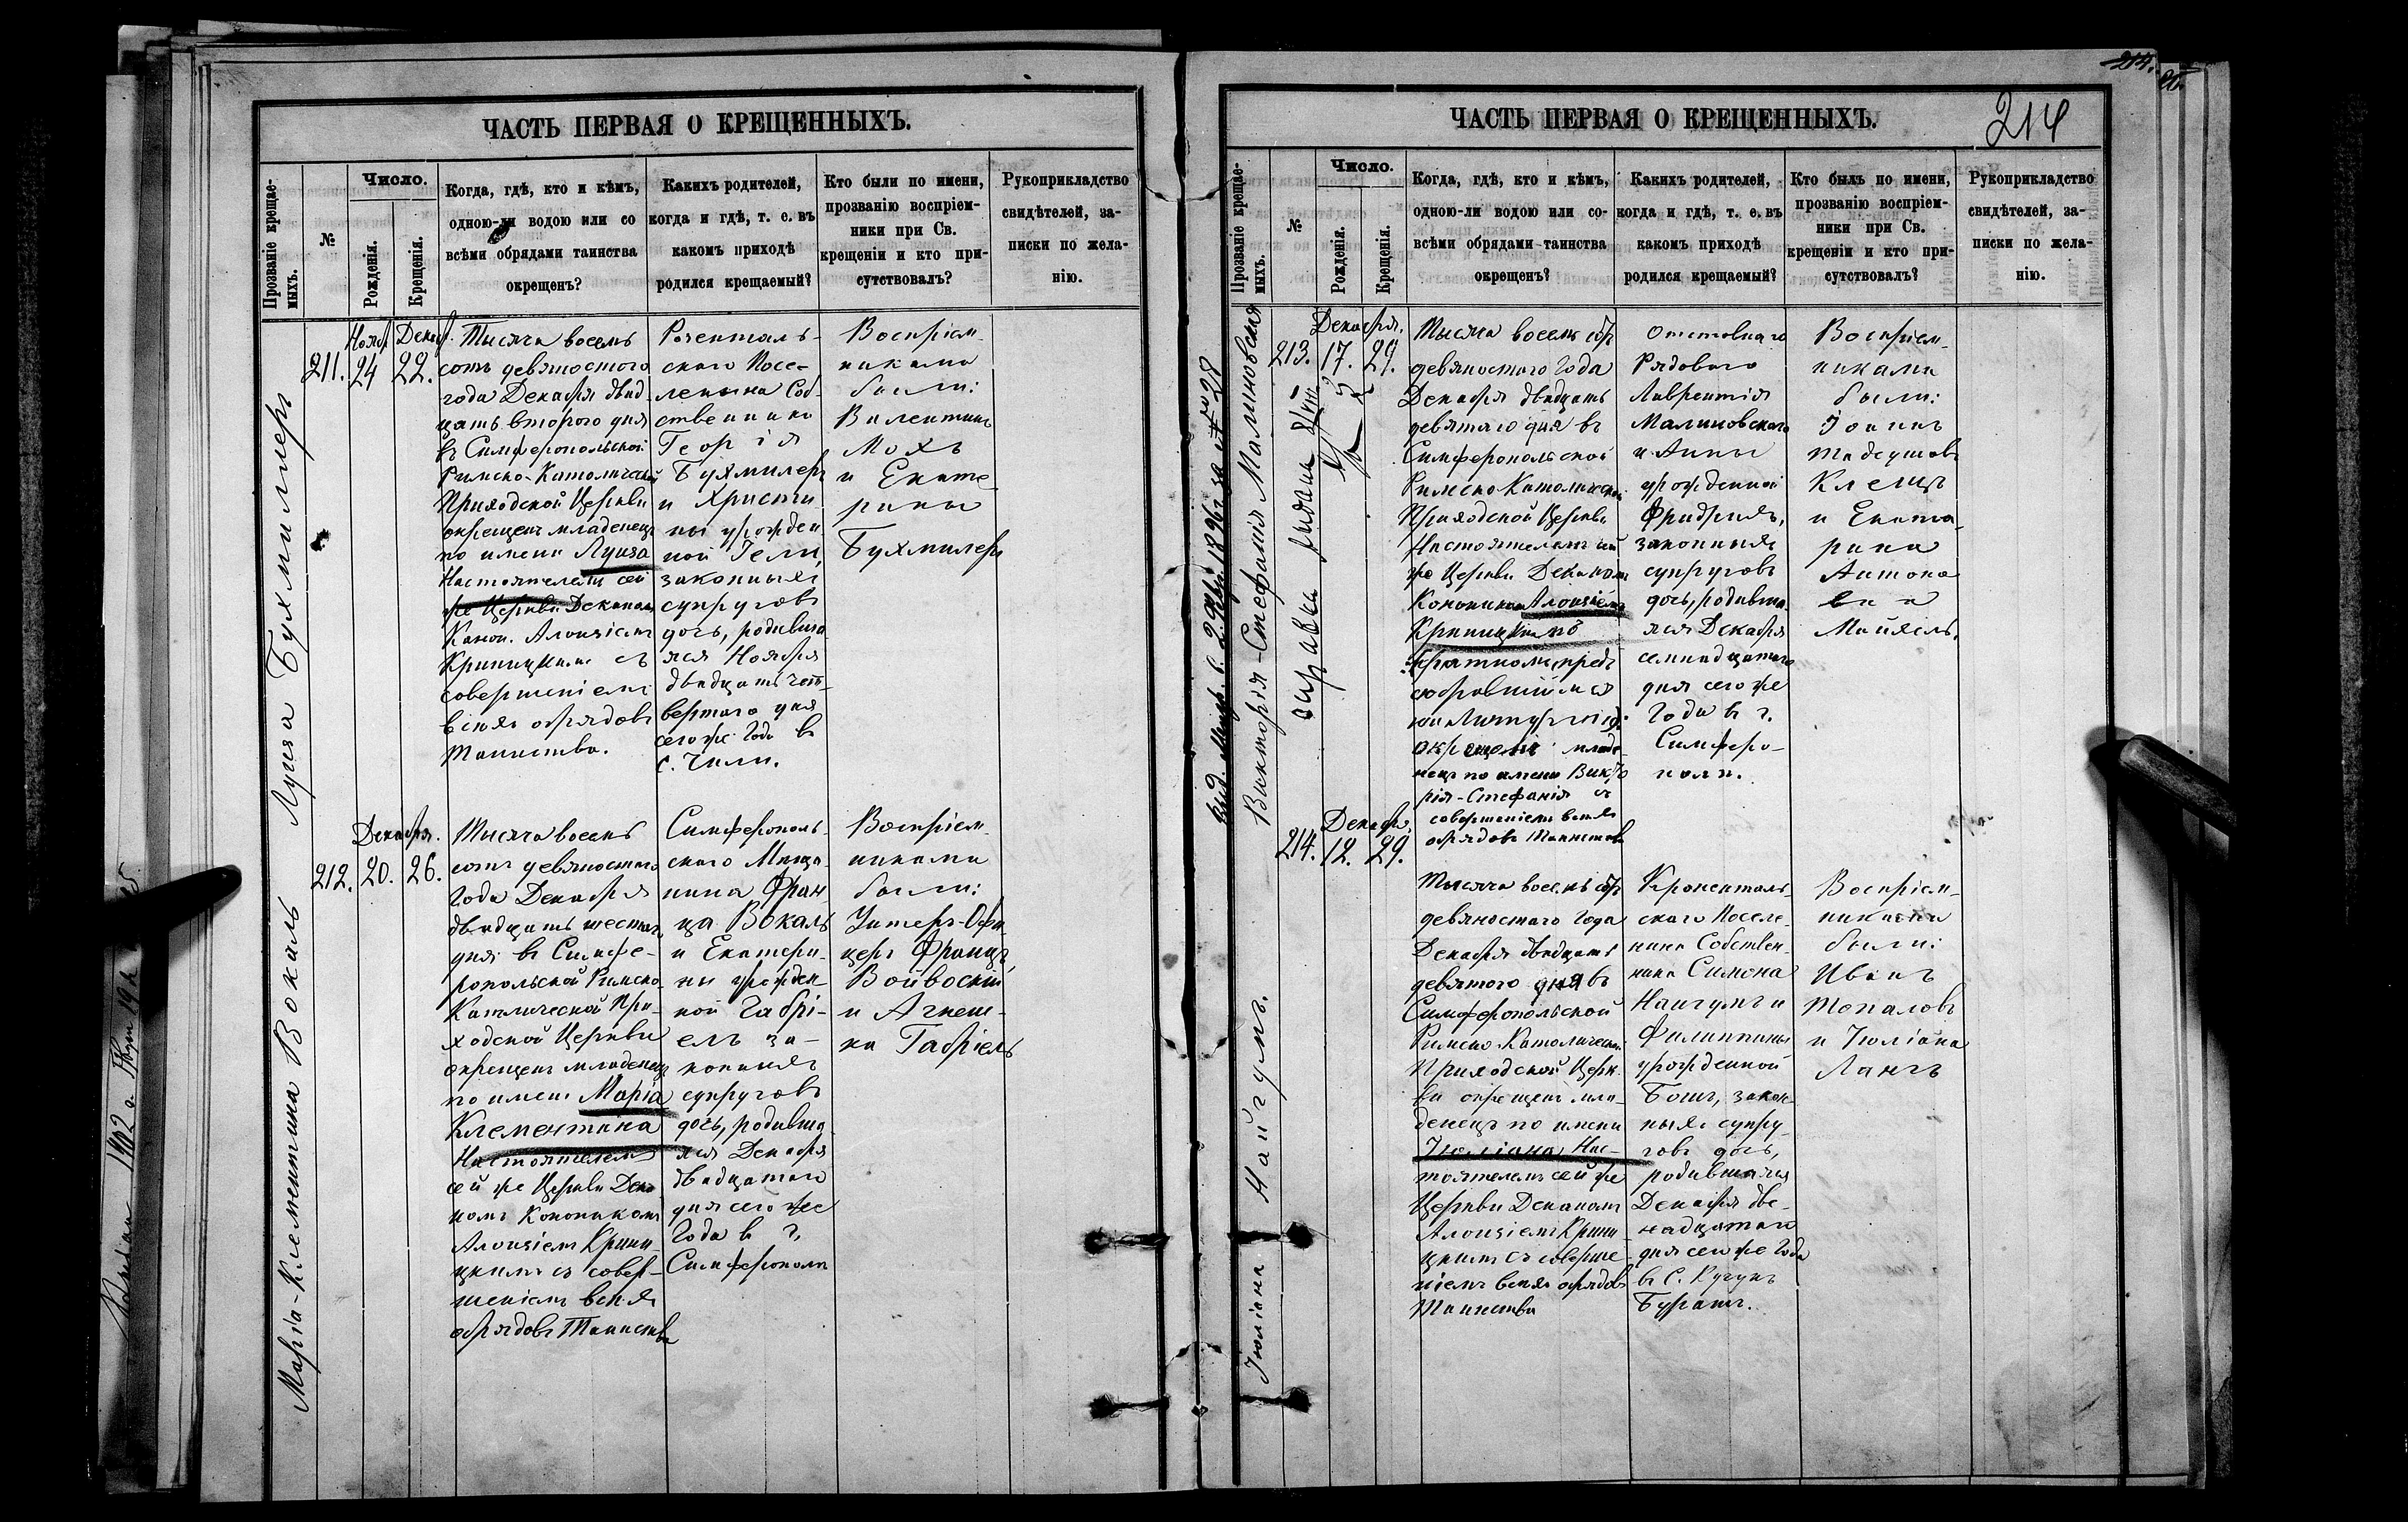 ЧАСТЬ ПЕРВАЯ О КРЕЩЕННЫХЪ.
Прозваніе крещае-
мыхъ.
№
Число.
Рожденія.
Крещенія.
Когда, гдѣ, кто и кѣмъ,
одною-ли водою или со
всѣми обрядами таинства
окрещенъ?
Какихъ родителей,
когда и гдѣ, т. е. въ
какомъ приходѣ
родился крещаемый?
Кто были по имени,
прозванію воспріем-
ники при Св.
крещеніи и кто при-
сутствовалъ?
Рукоприкладство
свидѣтелей, за-
писки по жела-
нію.
Луиза Бухмиллеръ
211.
Нояб
24
Декаб.
22.
Тысяча восемь
сотъ девяностого
года Декабря двад-
цать второго дня
въ Симферопольской
Римско-Католической
Приходской Церкви
окрещенъ младенецъ
по имени Луиза
Настоятелемъ сей
же Церкви Деканомъ
Канон. Алоизіемъ
Криницкимъ съ
совершеніемъ
всѣхъ обрядовъ
Таинства.
Розенталь-
скаго Посе-
ленина Соб-
ственника
Георгія
Бухмилеръ
и Христи
ны урожден
ной Гели,
законныхъ
супруговъ
дочь, родивша
яся Ноября
двадцать чет-
вертого дня
сего же Года въ
с. Чили.
Воспріем-
никами
были:
Валентинъ
Мохъ
и Екате-
рина
Бухмилеръ
Марія-Клементина Вокаль
212.
Декабря.
20.
26.
Тысяча восемь
сотъ девяностого
Года Декабря
двадцать шестого
дня въ Симфе-
ропольской Римско-
Католической При-
ходской Церкви
окрещенъ младенецъ
по имени Марія
Клементина
Настоятелемъ
сей же Церкви Дека
номъ Каноникомъ
Алоизіемъ Крини-
цкимъ съ совер-
шеніемъ всѣхъ
обрядовъ Таинства
Симферополь-
скаго Мѣща-
нина Фран
ца Вокаль
и Екатери-
ны урожден
ной Габрі-
елъ за-
конныхъ
супруговъ
дочь, родивша-
яся Декабря
двадцатаго
дня сего же
Года въ г.
Симферополи
Воспріем-
никами
были:
Унтеръ-Офи-
церъ Францъ
Войвоскій
и Агнеш-
ка Габріель
ЧАСТЬ ПЕРВАЯ О КРЕЩЕННЫХЪ.
214
Прозваніе крещае-
мыхъ.
№
Число.
Рожденія.
Крещенія.
Когда, гдѣ, кто и кѣмъ,
одною-ли водою или со-
всѣми обрядами таинства
окрещенъ?
Какихъ родителей,
когда и гдѣ, т. е. въ
какомъ приходѣ
родился крещаемый?
Кто былъ по имени,
прозванію воспріем-
ники при Св.
крещеніи и кто при-
сутствовалъ?
Рукоприкладство
свидѣтелей, за-
писки по жела-
нію.
Викторія-Стефанія Малиновская
213.
Декабря.
17.
29.
Тысяча восемь сотъ
девяностого Года
Декабря двадцать
девятаго дня въ
Симферопольской
Римско Католической
Приходской Церкви
Настоятелемъ сей
же Церкви Деканомъ
Каноникомъ Алоизіемъ
Криницкимъ
окрещенъ младе-
нецъ по имени Викто
рія-Стефанія съ
совершеніемъ всѣхъ
обрядовъ Таинства
Отставнаго
Рядового
Лаврентія
Малиновскаго
и Анны
урожденной
Фридрихъ,
законныхъ
супруговъ
дочь, родивша-
яся Декабря
семнадцатаго
дня сего же
Года въ г.
Симферо-
поли.
Воспріем-
никами
были:
Іоаннъ
Клецъ
и Екате-
рина
Антоно
ва
214.
Декабр.
12.
29.
Юліана Найгумъ.
Тысяча восемь сотъ
девяностаго Года
Декабря двадцать
девятого дня въ
Симферопольской
Римско-Католической
Приходской Церк-
ви окрещенъ мла-
денецъ по имени
Юліана Нас-
тоятелемъ сей же
Церкви Деканомъ
Алоизіемъ Крини-
цкимъ съ соверше-
ніемъ всѣхъ обрядовъ
Таинства
Кроненталь-
скаго Поселе-
нина Собствен-
ника Симона
Найгумъ и
Филиппины
урожденной
Бошъ, закон-
ныхъ супру-
говъ дочь,
родившаяся
Декабря две-
надцатаго
дня сего же Года
въ С. Кучукъ
Бурашъ.
Воспріем-
никами
были:
Иванъ
Топаловъ
и Юліана
Лангъ